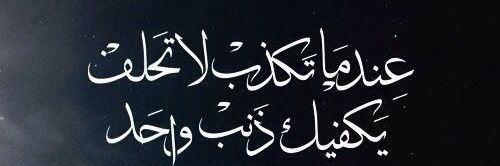 عِندمَا تَكذبْ لا تَحلفْ
يَكفيكَ ذَنبْ واحَد